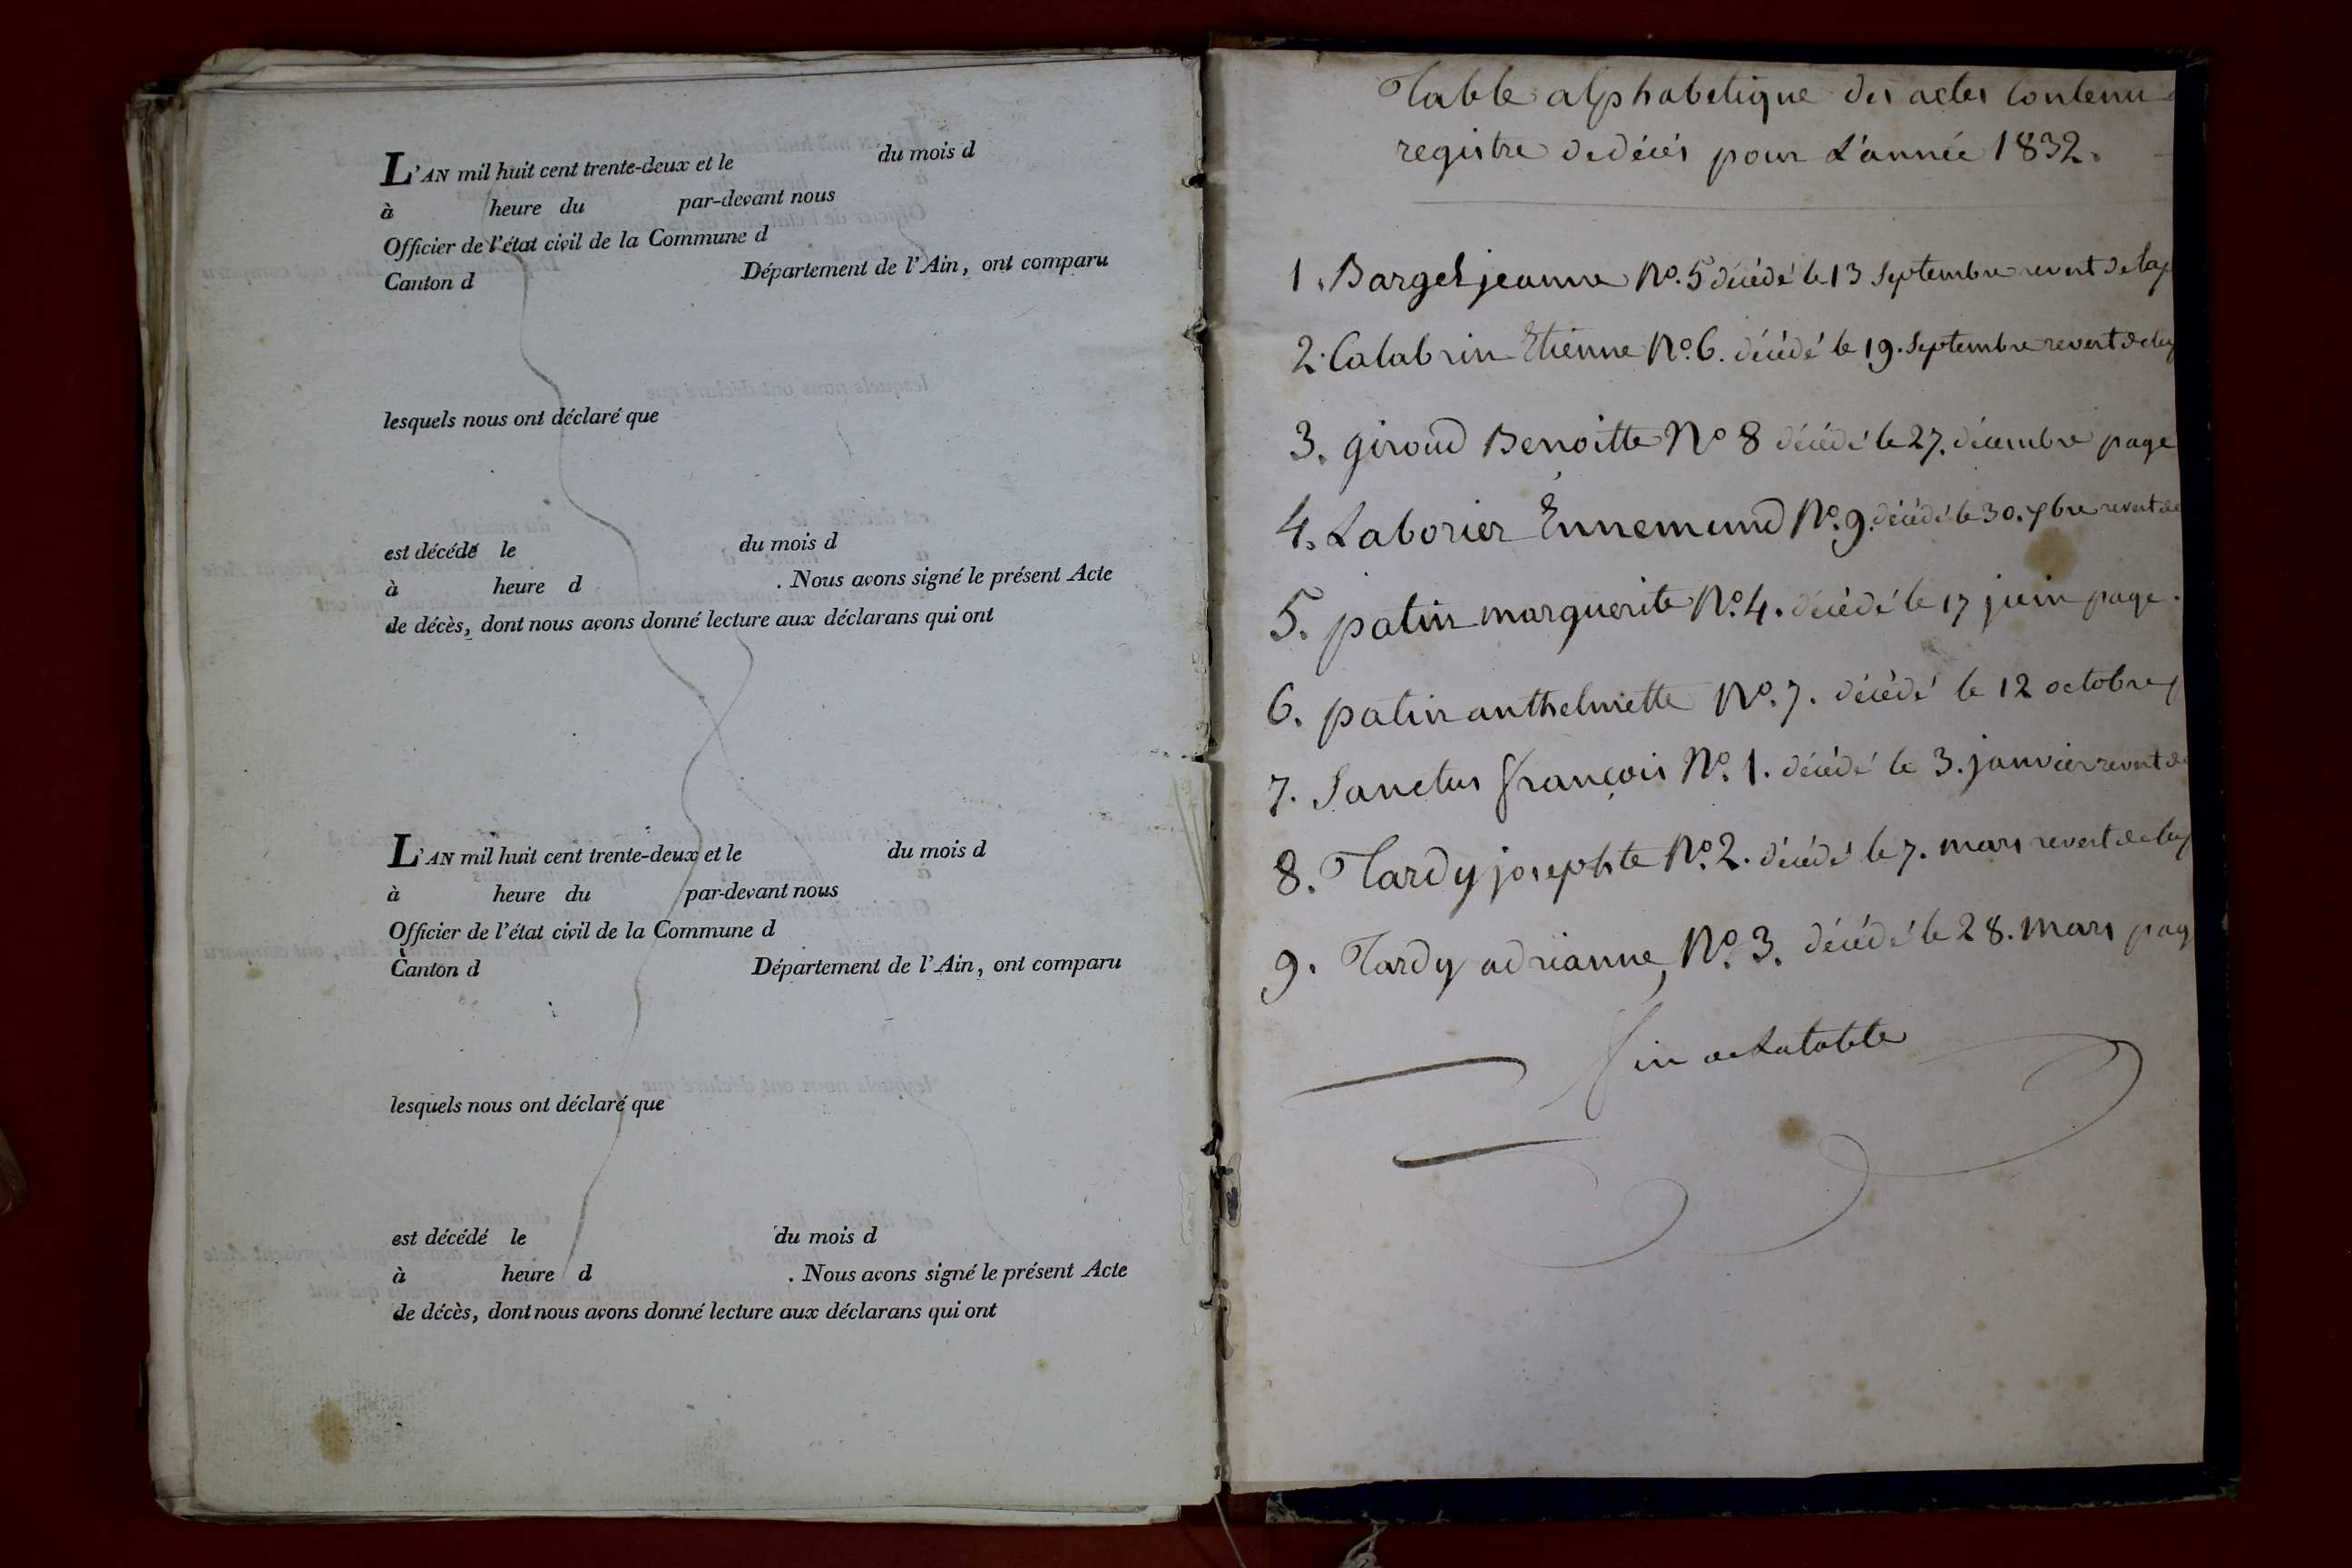 L'AN mil huit cent trente-deux et le du mois d
à heure du par-devant nous
Officier de l'état civil de la Commune d
Canton d Département de l'Ain, ont comparu
lesquels nous ont déclaré que
est décédé le du mois d
à heure d . Nous avons signé le présent Acte
de décès, dont nous avons donné lecture aux déclarans qui ont
L'AN mil huit cent trente-deux et le du mois d
à heure du par-devant nous
Officier de l'état civil de la Commune d
Canton d Département de l'Ain, ont comparu
lesquels nous ont déclaré que
est décédé le du mois d
à heure d . Nous avons signé le présent Acte
de décès, dont nous avons donné lecture aux déclarans qui ont
Table alphabetique des actes Contenu
registre de décés pour L'année 1832.
1. Barget jeanne No. 5 décédé le 13 Septembre revert de la
2. Calabrin Etienne No. 6. décédé le 19. Septembre revert de la
3. giroud Benoitte No 8 décédé le 27. décembre page
4. Laborier Ennemund No. 9. décédé le 30. revert de
5. patin marguerite No. 4. décédé le 17 juin page.
6. patin anthelmette No. 7. décédé le 12 octobre
7. Sanctus françois No. 1. décédé le 3. janvier revert de
8. Tardy josephte No. 2. décédé le 7. mars revert de la
9. Tardy adrianne, No. 3. décédé le 28. mars pag
fin de La table